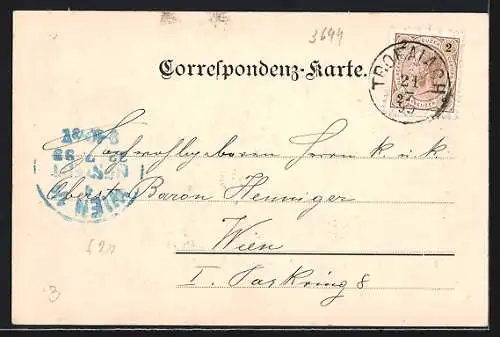 3644
Correspondenz-Karte.
2
TROFAIACH
21
27
95
WIEN
Hochwohlgeboren Herrn k. u. k.
Oberst Baron Henniger
Wien
I. Parkring 8
3